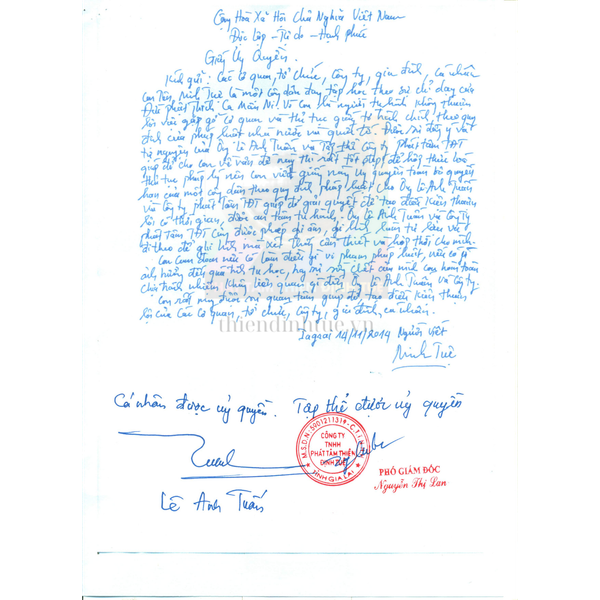 Cộng Hoà Xã Hội Chủ Nghĩa Việt Nam
Độc Lập - Tự do - Hạnh phúc
Giấy Ủy Quyền.
Kính gửi: Các Cơ quan, tổ chức, Công ty, gia đình, cá nhân
Con Tên, Minh Tuệ là một công dân đang tập học theo sự chỉ dạy của
Đức phật Thích Ca Mâu Ni. Vì Con là người tu hành không thuận
lợi việc gặp gỡ cơ quan và thủ tục giấy tờ hành chính theo quy
định của pháp luật nhà nước và quốc tế. Đến sự đây
tự nguyện của Ông Lê Anh Tuấn và Tập thể Công ty phát tâm TĐT
giúp đỡ cho con về vấn đề này thì rất tốt đẹp để hợp thức hoá
thủ tục pháp lý nên con viết giấy này ủy quyền toàn bộ quyền
hạn của một công dân theo quy định pháp luật cho Ông Lê Anh Tuấn
và Công ty phát Tâm TĐT giúp đỡ giải quyết để tạo điều kiện thuận
lợi có thời gian, được an tâm tu hành. Ông Lê Anh Tuấn và Công ty
phát tâm TĐT cũng được phép ghi âm, ghi hình,
đi theo để ghi hình mà xét thấy cần thiết và hợp thời cho mình.
Con Cam đoan nếu có làm điều gì vi phạm pháp luật, nếu có
ảnh hưởng đến quá trình tu học hay sự sống chết của mình con hoàn toàn
chịu trách nhiệm không liên quan gì đến Ông Lê Anh Tuấn và Công ty.
Con rất mong được sự quan tâm giúp đỡ, tạo điều kiện thuận
lợi của các Cơ quan, tổ chức, Công ty, gia đình, cá nhân.
thiendinhtue.vn
14/11/2014 Người viết
Minh Tuệ
Cá nhân được uỷ quyền. Tập thể được uỷ quyền
CÔNG TY
TNHH
PHÁT TÂM THIỀN
ĐỊNH TUỆ
TỈNH GIA LAI
PHÓ GIÁM ĐỐC
Nguyễn Thị Lan
Lê Anh Tuấn